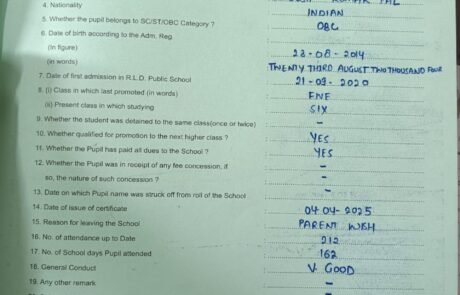 4. Nationality INDIAN
5. Whether the pupil belongs to SC/ST/OBC Category ? OBC
6. Date of birth according to the Adm. Reg.
(In figure) 23-08-2014
(in words) TWENTY THIRD AUGUST TWO THOUSAND FOUR
7. Date of first admission in R.L.D. Public School 21-09-2020
8. (i) Class in which last promoted (in words) FIVE
(ii) Present class in which studying SIX
9. Whether the student was detained to the same class(once or twice) –
10. Whether qualified for promotion to the next higher class ? YES
11. Whether the Pupil has paid all dues to the School ? YES
12. Whether the Pupil was in receipt of any fee concession, if –
so, the nature of such concession ? –
13. Date on which Pupil name was struck off from roll of the School –
14. Date of issue of certificate 04-04-2025
15. Reason for leaving the School PARENT WISH
16. No. of attendance up to Date 212
17. No. of School days Pupil attended 162
18. General Conduct V. GOOD
19. Any other remark –